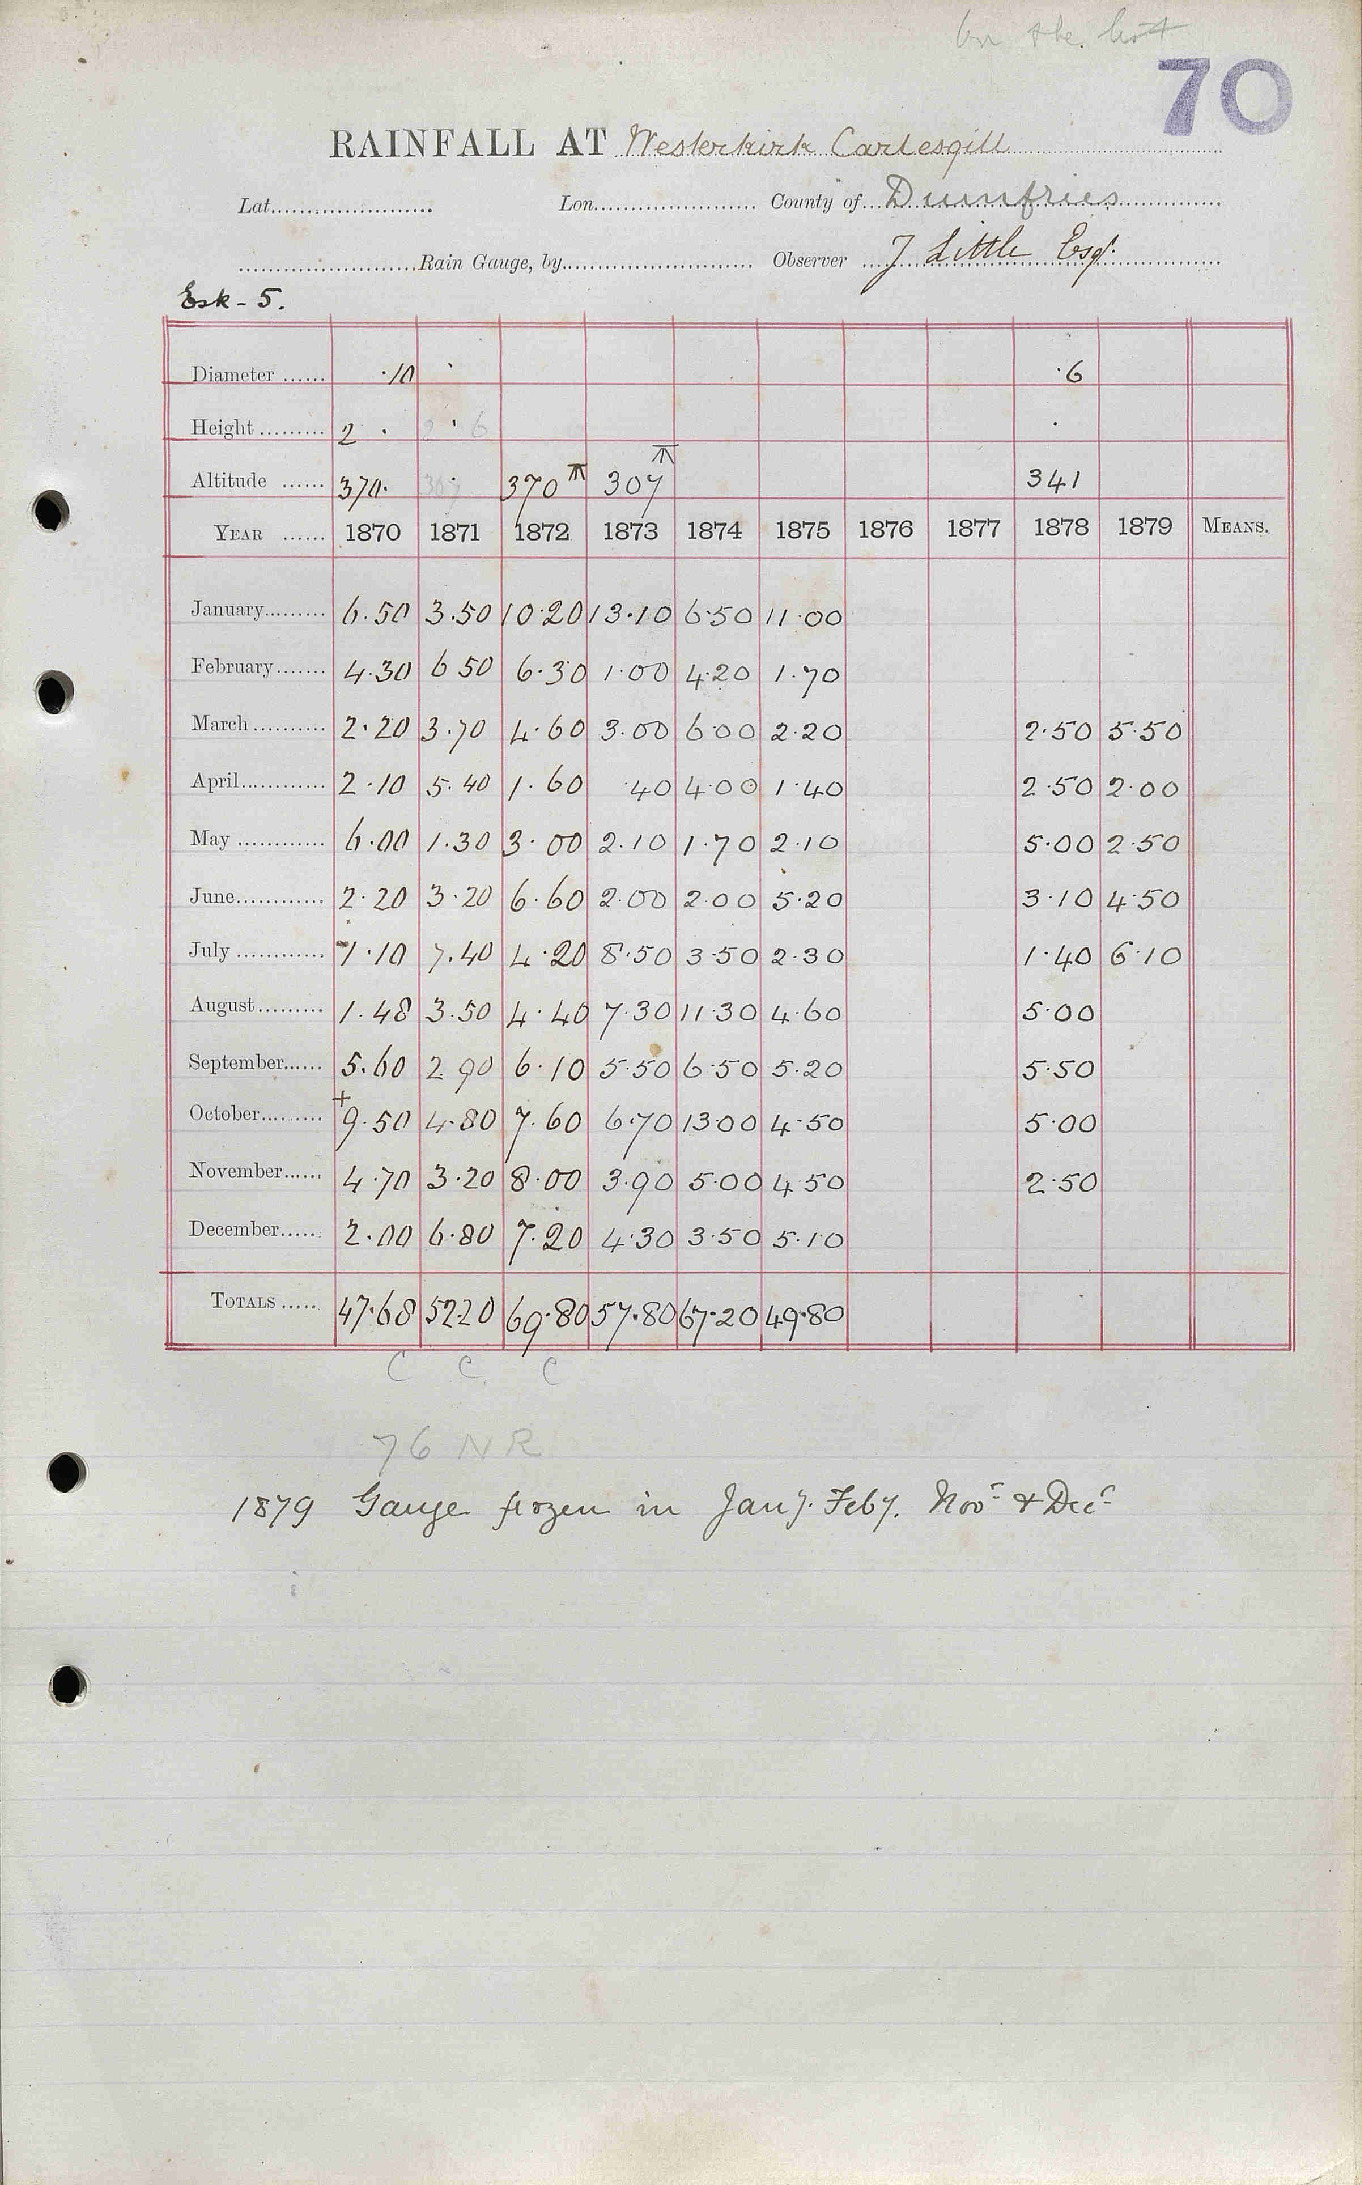 on the list
70
RAINFALL AT Westerkirk Carlesgill
Lat. Lon. County of Dumfries
Rain Gauge, by Observer J Little Esqr.
Esk - 5.
Diameter ...... ·10 ·6
Height ......... 2 · 2 · 6
Altitude ...... 370· 307 370 307 341
YEAR ...... 1870 1871 1872 1873 1874 1875 1876 1877 1878 1879 MEANS.
January......... 6·50 3·50 10·20 13·10 6·50 11·00
February....... 4·30 6 50 6·30 1·00 4·20 1·70
March.......... 2·20 3·70 4·60 3·00 6·00 2·20 2·50 5·50
April............ 2·10 5·40 1·60 ·40 4·00 1·40 2·50 2·00
May ............ 6·00 1·30 3·00 2·10 1·70 2·10 5·00 2·50
June............ 2·20 3·20 6·60 2·00 2·00 5·20 3·10 4·50
July ............ 1·10 7·40 4·20 8·50 3·50 2·30 1·40 6·10
August......... 1·48 3·50 4·40 7·30 11·30 4·60 5·00
September...... 5·60 2 90 6·10 5·50 6·50 5·20 5·50
October......... + 9·50 4·80 7·60 6·70 13·00 4·50 5·00
November...... 4·70 3·20 8·00 3·90 5·00 4·50 2·50
December...... 2·00 6·80 7·20 4·30 3·50 5·10
TOTALS ...... 47·68 52·20 69·80 57·80 67·20 49·80
C C C
76 NR
1879 Gauge frozen in Jany. Feby. Novr & Decr